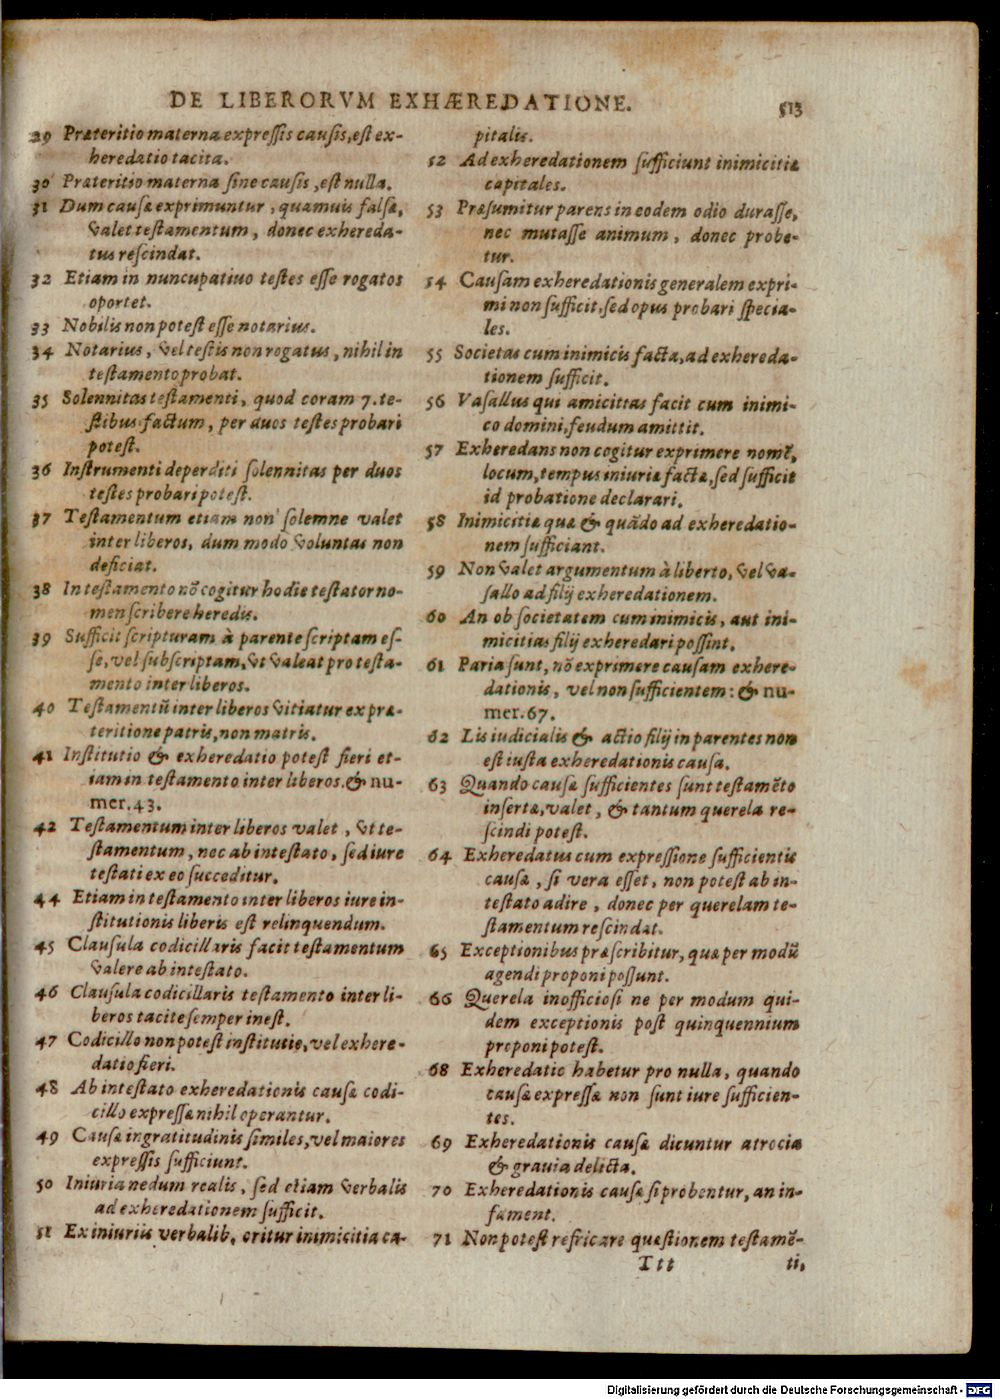 DE LIBERORVM EXHÆREDATIONE. 513
29 Præteritio materna expressis causis, est ex-
heredatio tacita.
30 Præteritio materna sine causis, est nulla.
31 Dum causæ exprimuntur, quamuis falsæ,
valet testamentum, donec exhereda-
tus rescindat.
32 Etiam in nuncupatiuo testes esse rogatos
oportet.
33 Nobilis non potest esse notarius.
34 Notarius, vel testis non rogatus, nihil in
testamento probat.
35 Solennitas testamenti, quod coram 7. te-
stibus factum, per duos testes probari
potest.
36 Instrumenti deperditi solennitas per duos
testes probari potest.
37 Testamentum etiam non solemne valet
inter liberos, dum modo voluntas non
deficiat.
38 In testamento nõ cogitur hodie testator no-
men scribere heredis.
39 Sufficit scripturam à parente scriptam es-
se, vel subscriptam, vt valeat pro testa-
mento inter liberos.
40 Testamentũ inter liberos vitiatur ex præ-
teritione patris, non matris.
41 Institutio & exheredatio potest fieri et-
iam in testamento inter liberos. & nu-
mer. 43.
42 Testamentum inter liberos valet, vt te-
stamentum, nec ab intestato, sed iure
testati ex eo succeditur.
44 Etiam in testamento inter liberos iure in-
stitutionis liberis est relinquendum.
45 Clausula codicillaris facit testamentum
valere ab intestato.
46 Clausula codicillaris testamento inter li-
beros tacite semper inest.
47 Codicillo non potest institutio, vel exhere-
datio fieri.
48 Ab intestato exheredationis causæ codi-
cillo expressæ nihil operantur.
49 Causæ ingratitudinis similes, vel maiores
expressis sufficiunt.
50 Iniuria nedum realis, sed etiam verbalis
ad exheredationem sufficit.
51 Ex iniuriis verbalib. oritur inimicitia ca-
pitalis.
52 Ad exheredationem sufficiunt inimicitiæ
capitales.
53 Præsumitur parens in eodem odio durasse,
nec mutasse animum, donec probe-
tur.
54 Causam exheredationis generalem expri-
mi non sufficit, sed opus probari specia-
les.
55 Societas cum inimicis facta, ad exhereda-
tionem sufficit.
56 Vasallus qui amicitias facit cum inimi-
co domini, feudum amittit.
57 Exheredans non cogitur exprimere nomẽ,
locum, tempus iniuriæ factæ, sed sufficit
id probatione declarari.
58 Inimicitiæ quæ & quãdo ad exheredatio-
nem sufficiant.
59 Non valet argumentum à liberto, vel va-
sallo ad filij exheredationem.
60 An ob societatem cum inimicis, aut ini-
micitias filij exheredari possint.
61 Paria sunt, nõ exprimere causam exhere-
dationis, vel non sufficientem: & nu-
mer. 67.
62 Lis iudicialis & actio filij in parentes non
est iusta exheredationis causa.
63 Quando causæ sufficientes sunt testamẽto
insertæ, valet, & tantum querela re-
scindi potest.
64 Exheredatus cum expressione sufficientis
causæ, si vera esset, non potest ab in-
testato adire, donec per querelam te-
stamentum rescindat.
65 Exceptionibus præscribitur, quæ per modũ
agendi proponi possunt.
66 Querela inofficiosi ne per modum qui-
dem exceptionis post quinquennium
proponi potest.
68 Exheredatio habetur pro nulla, quando
causæ expressæ non sunt iure sufficien-
tes.
69 Exheredationis causæ dicuntur atrocia
& grauia delicta.
70 Exheredationis causæ si probentur, an in-
fament.
71 Non potest refricare quæstionem testamẽ-
Ttt ti,
Digitalisierung gefördert durch die Deutsche Forschungsgemeinschaft - DFG